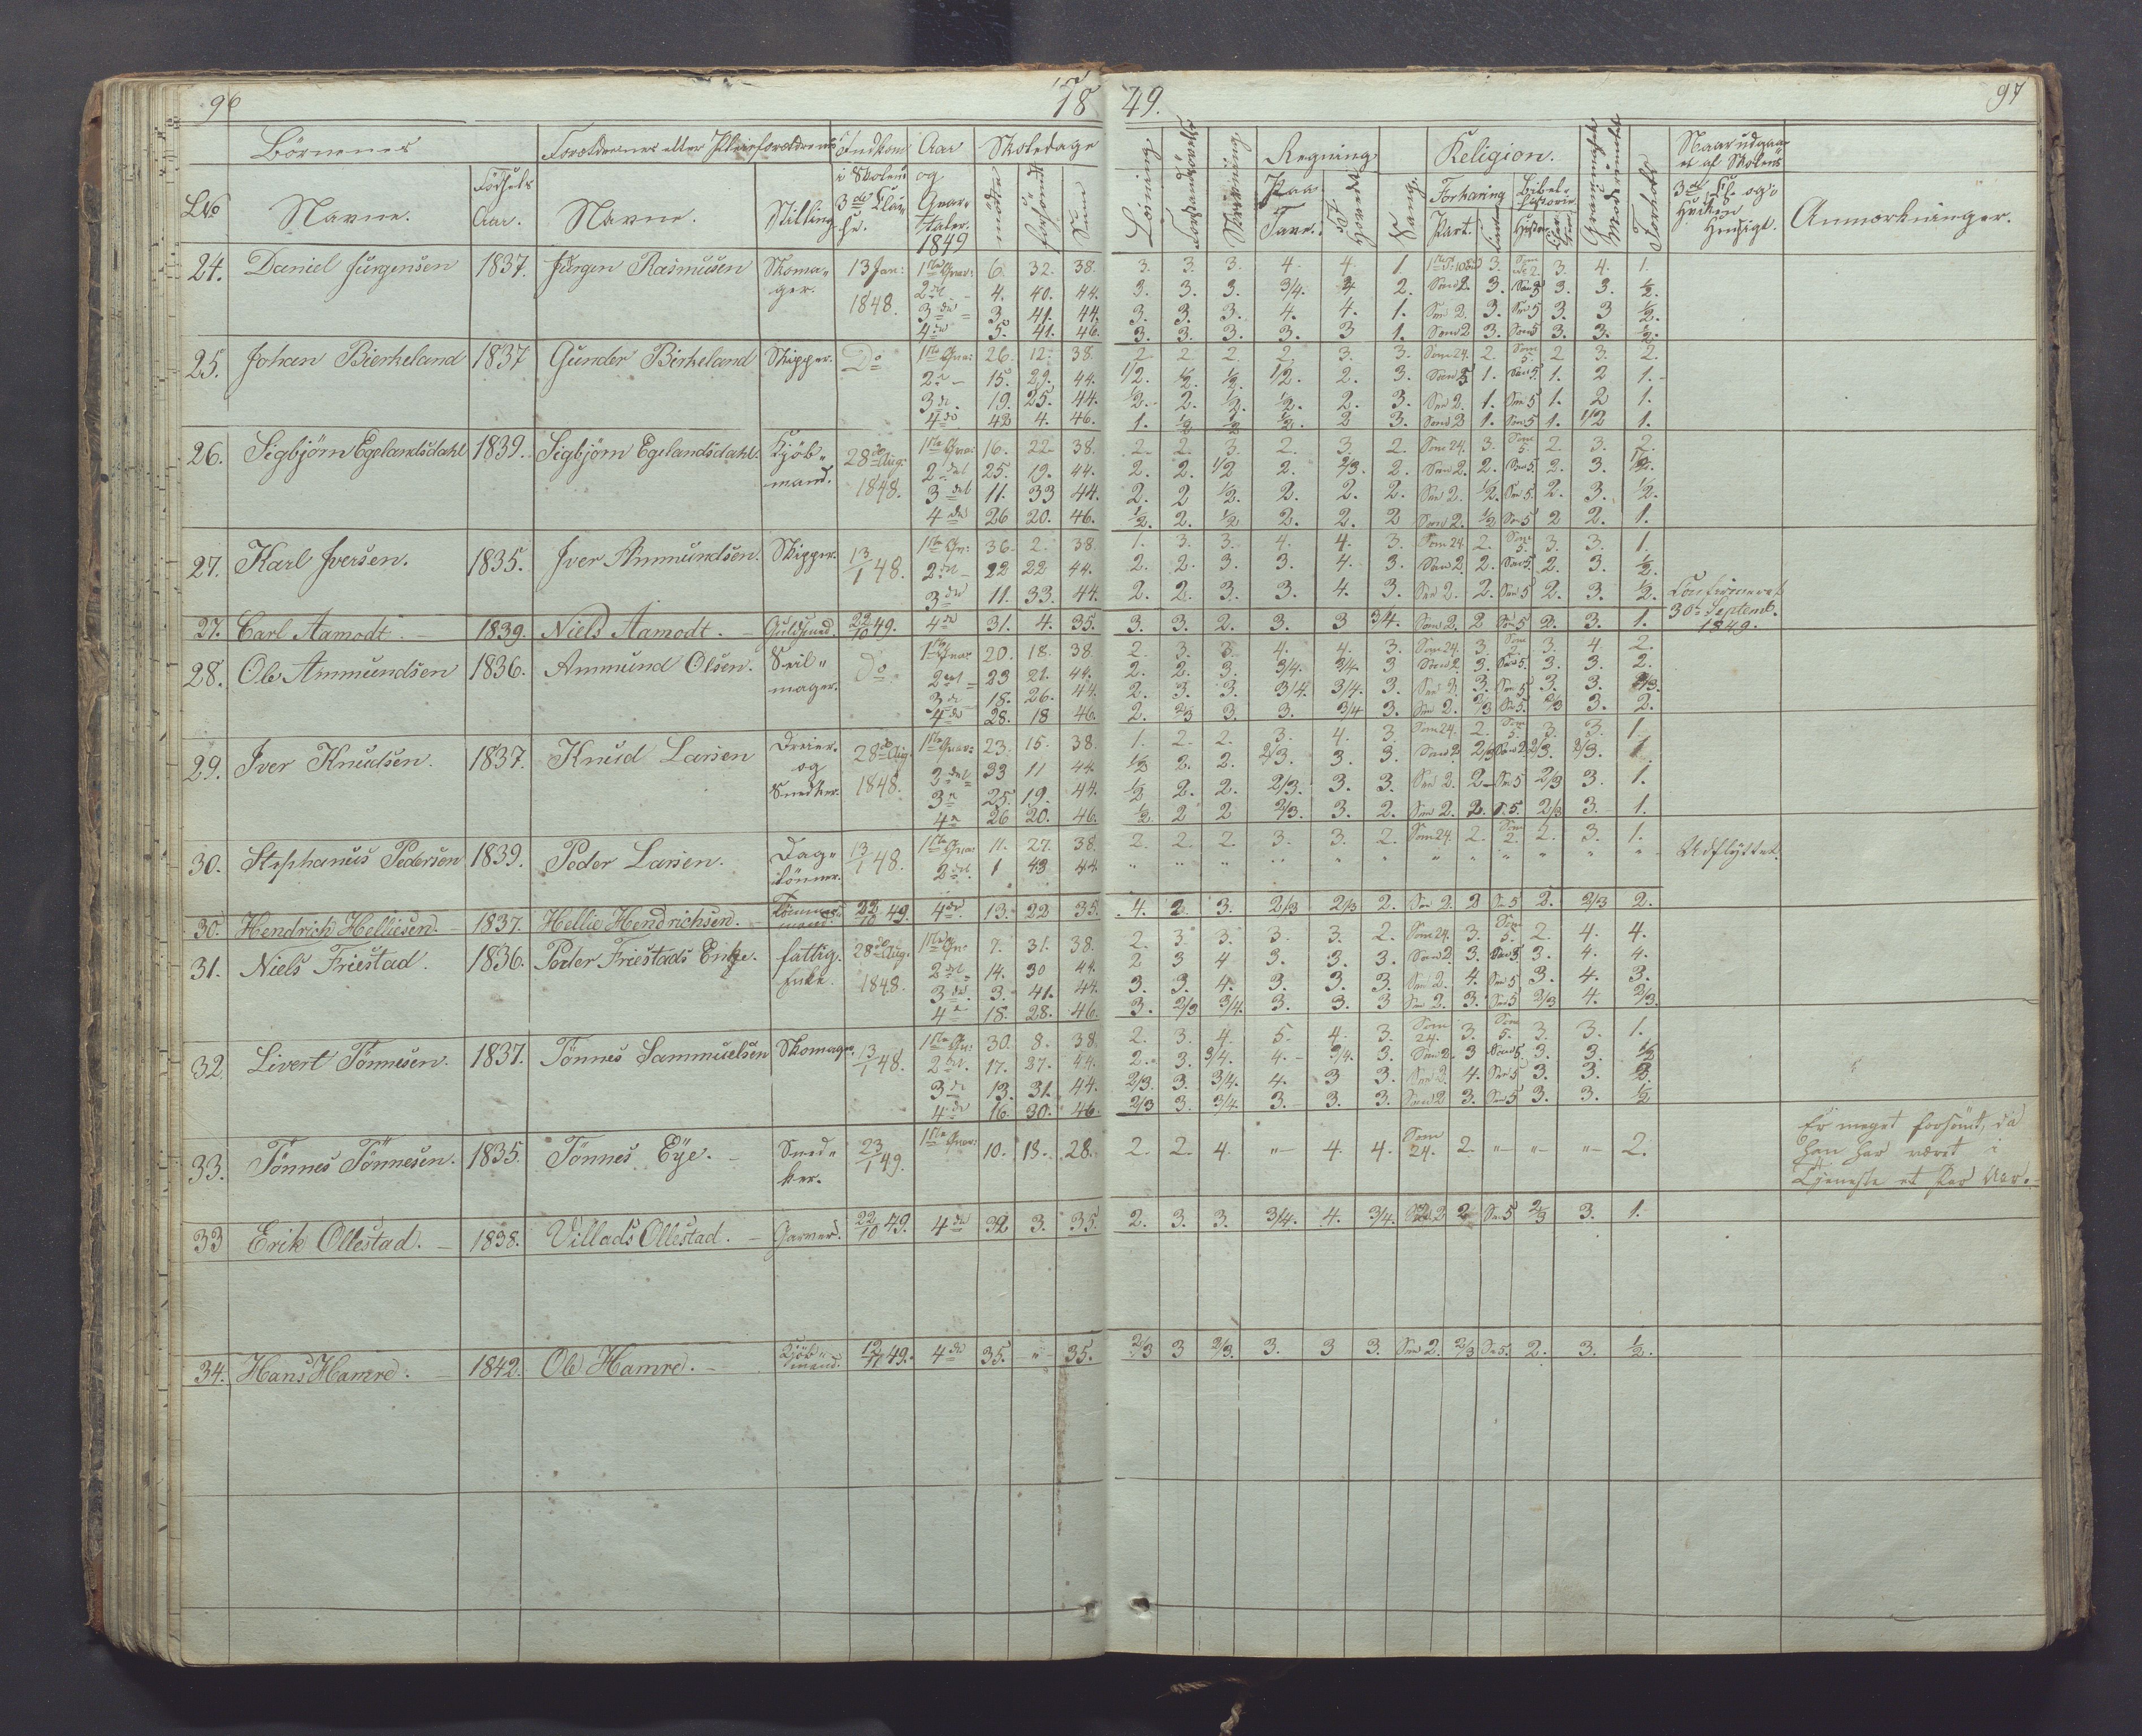 96
18
49.
97
Börnenes
Forældrenes eller Pleieforældrenes
Indkom
Aar
Skoledage
Regning
Religion.
Naar udgaa-
et af Skolens
i Skolens
og
Læsning.
Skrivning
Sang.
Forklaring
Bibel-
historie
Forhold
3die Kl. og i
hvilken
Hensigt.
LNo
Navne.
Födsels
Aar.
Navne.
Stilling
3die Klas-
se.
Qvar-
taler.
1849
mödte
forsömt
Sum
Paa
Tavle.
I
Hovedet
Part.
Anmærkninger.
24. Daniel Jürgensen 1837. Jürgen Rasmusen Skoma- 13 Jan: 1ste Qvar: 6. 32. 38. 3. 3. 3. 4. 4. 1. 3. 3. 4. 1.
ger. 1848. 2det 4. 40. 44. 3. 3. 3. 3/4. 4 2. Som 2. 3. 3. 3. 1/2.
3die 3. 41. 44. 3. 3. 3. 4. 4. 1. Som 2. 3. Som 5 3. 3 1/2.
4de 5. 41. 46. 3. 3. 3. 3. 3 1. Som 2 3. Som 5 3. 3. 1/2.
25. Johan Bierkeland 1837 Gunder Birkeland Skipper. Do 1ste Qva: 26. 12. 38. 2 2. 2. 2. 3. 3. Som 24. 2. Som 5. 2 3. 2.
2det 15. 29. 44. 1/2. 1/2. 1/2. 1/2. 2. 3. 1. Som 5. 1. 2 1.
3die 19. 25. 44. 1/2. 2. 1/2. 1/2. 2. 3. Som 2. 1. Som 5 1. 2 1.
4de 42 4. 46. 1. 1/2 1/2 1/2 2 3. Som 2 1. Som 5 1. 1/2 1.
26. Sigbjörn Egelandsdahl 1839. Sigbjörn Egelandsdahl. Kjöb- 28de Aug. 1ste Qva: 16. 22 38. 2. 2. 3. 2. 3. 2. Som 24. 3. Som 5. 2. 3. 2.
mand. 1848. 2det 25. 19. 44. 2. 2. 1/2 2. 2/3. 2. Som 2. 2. Som 5. 2. 3. 1/2.
3die 11. 33 44. 2. 2 1/2. 2. 2. 2. Som 2. 1/2. Som 5. 2. 3. 1/2.
4de 26 20. 46. 1/2. 2. 1/2 2. 2. 2 Som 2. 1/2 Som 5 2 2. 1.
27. Karl Iversen. 1835. Iver Ammundsen. Skipper. 13/1 48. 1ste Qv: 36. 2. 38. 1. 3. 3. 4. 4. 3. Som 24. 2. Som 5. 3. 3. 1.
2det 22 22 44. 2. 2. 3. 3. 4. 3. Som 2. 2. Som 5. 2. 3. 1/2.
3die 11. 33. 44. 2. 2. 3. 3. 4. 3. Som 2. 2. Som 5 2. 3. 1/2. Confirmeret
30te Septemb.
1849.
27. Carl Aamodt. - 1839. Niels Aamodt. - Guldsmed 22/10 49. 4de 31. 4. 35. 3. 3. 2. 3. 3 3/4. Som 2. 2 Som 5 2. 3. 1.
28. Ole Ammundsen 1836. Ammund Olsen. Seil- Do 1ste Qvar 20. 18. 38 2. 3. 3. 4. 4. 3. Som 24. 3. Som 2. 3. 4. 2.
mager. 2det 23 21. 44. 2. 2. 3. 3/4. 3/4. 3 Som 2. 3. Som 5. 3. 3. 2.
3die 18. 26. 44. 2. 3. 3. 3/4. 3/4. 3. Som 2. 3. Som 5 3. 3. 2/3.
4de 28. 18 46. 2. 2/3 3. 3. 3/4 3. Som 2. 2/3 Som 5. 2/3 3. 2.
29. Iver Knudsen. 1837. Knud Larsen Dreier- 28de Aug. 1ste Qvar: 23. 15. 38. 1. 2. 2. 3. 4. 3. Som 24. 2. Som 5. 3. 3. 1.
og 1848. 2det 33 11 44 1/2 2. 2. 2/3. 3. 3. Som 2. 2/3 Som 2. 2/3. 2/3. 1.
Snedker. 3die 25. 19. 44. 1/2 2. 2. 2/3. 3. 3. Som 2. 2 Som 5 2/3 3. 1.
4de 26 20. 46. 1/2 2 2 2/3. 3. 2. Som 2. 2. S. 5. 2/3 3. 1.
30. Stephanus Pedersen 1839. Peder Larsen. Dag- 13/1 48. 1ste Qvar 11. 27. 38. 2. 2. 2. 3. 3. 2. Som 24. 2. Som 2. 2. 3. 1. Udflyttet.
lönner. 2det 1 43 44 " " " " " " " " " " " "
30. Hendrich Helliesen. - 1837. Hellie Hendrichsen. - Tömmermand. 22/10 49. 4de 13. 22 35. 4. 2. 3. 2/3 2/3 2. Som 2. 2 Som 5 2. 2/3 2.
31. Niels Friestad. 1836. Peder Friestads Enke. fattig. 28de Aug. 1ste Qv: 7. 31. 38. 2. 3. 3. 3. 3. 2. Som 24. 3. Som 5. 2. 4. 4.
Enke. 1848. 2det 14. 30 44. 2 3 4 3. 3. 3. Som 2. 3. Som 5 3. 4. 4.
3die 3. 41. 44. 3. 3. 4. 3. 3. 3. Som 2. 4. Som 5 3. 4. 3.
4de 18. 28. 46. 3. 2/3 3/4. 3. 3. 3 Som 2. 3. Som 5 2/3 4. 2/3.
32. Livert Tönnesen. 1837. Tönnes Sammuelsen Skomager. 13/1 48. 1ste Qv: 30. 8. 38. 2. 3. 4. 5. 4. 3. Som 24. 3. Som 5. 3. 3. 1.
2det 17. 27. 44. 2. 3. 3/4. 4. 3/4. 3. Som 2. 3 Som 5. 3. 3. 1/2
3die 13. 31. 44. 2/3. 3. 3/4. 4. 3 3. Som 2. 4. Som 5 3. 3. 2.
4de 16. 30. 46. 2/3 3. 3/4. 3. 3. 3. Som 2 3. Som 5 3. 3. 1/2
33. Tönnes Tönnesen. 1835. Tönnes Eye. Sned- 23/1 49. 1ste Qvar: 10. 18. 28. 2. 2. 4. " 4. 4. Som 24. 2. " " " 2. Er meget forsömt, da
ker. han har været i
Tjeneste et Par Aar.
33 Erik Ollestad. - 1838. Villads Ollestad. - Garver. 22/10 49. 4de 32 3. 35. 2. 3. 3. 3/4. 4. 3/4. Som 2 2 Som 5 2/3 3. 1.
34. Hans Hamre. - 1842. Ole Hamre. - Kjöb-mand. 12/11 49. 4de 35. " 35. 2/3 3 2/3. 3. 3 3. Som 2. 2/3 Som 5. 2. 3. 1/2.